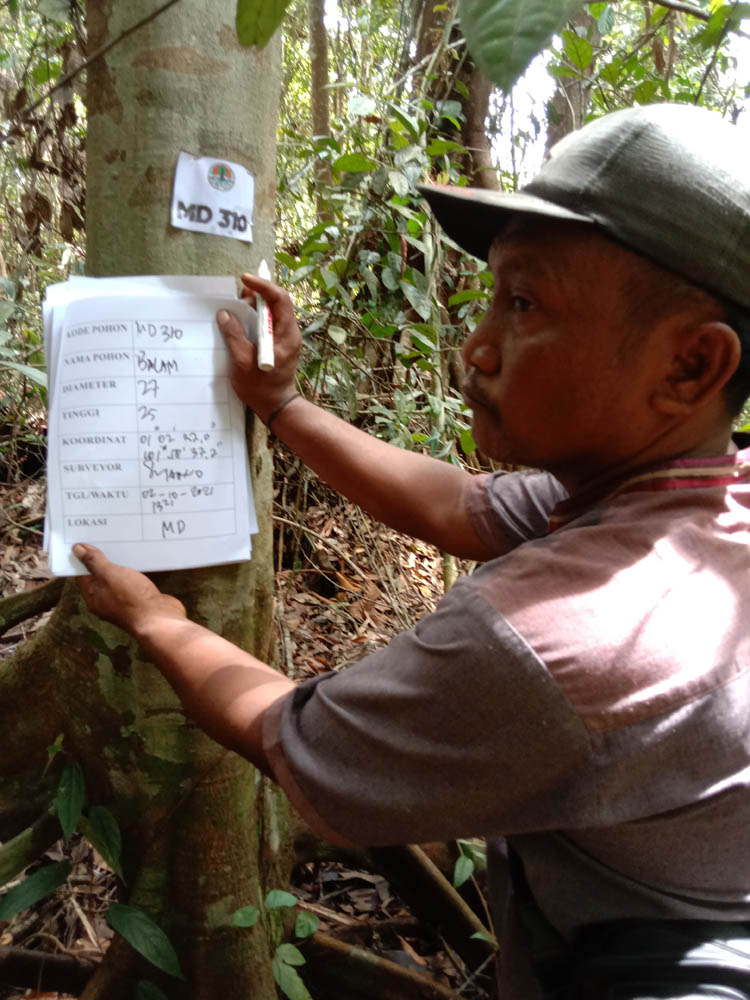 MD 310
KODE POHON MD 310
NAMA POHON BALAM
DIAMETER 27
TINGGI 25
KOORDINAT 01° 02' 22,0"
101° 58' 37,2"
SURVEYOR
TGL/WAKTU 02-10-2021
1321
LOKASI MD